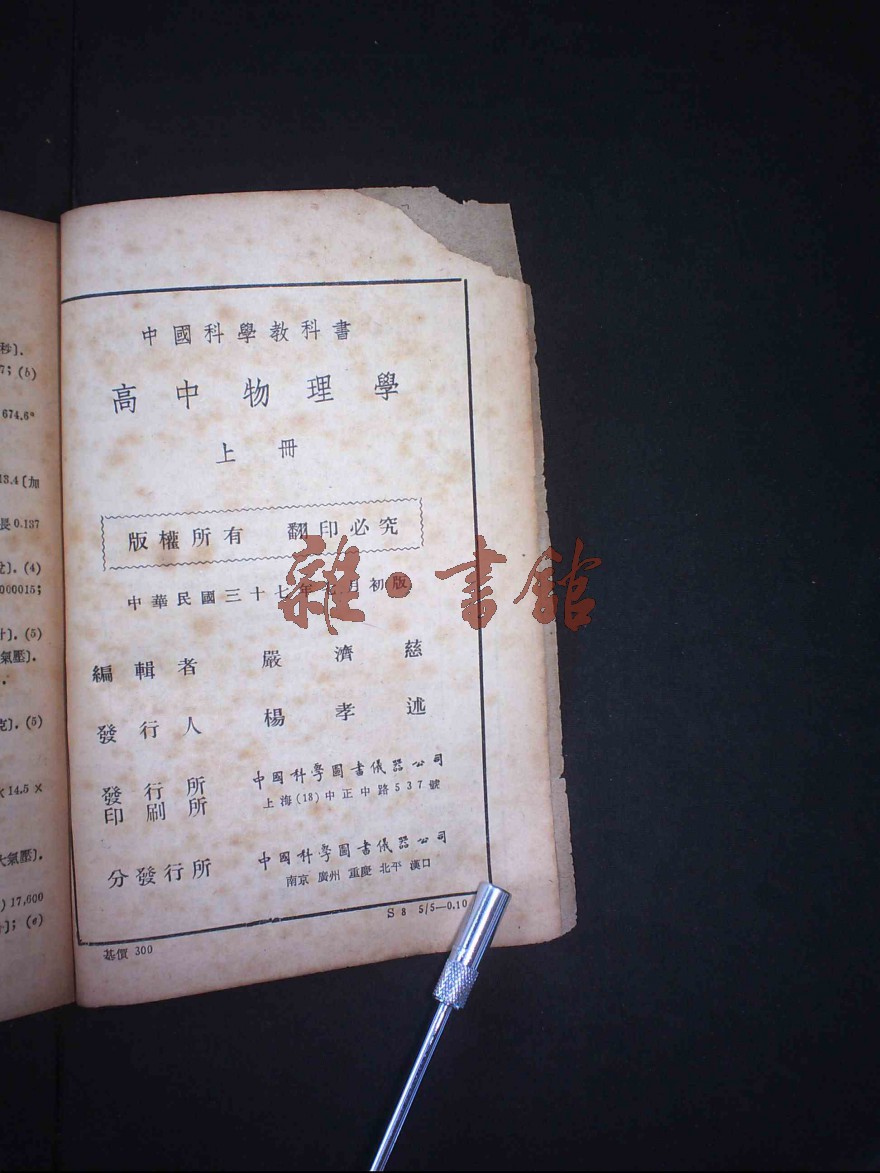 秒〕.
7; (b)
674.6°
13.4〔加
長 0.137
(4)
000015;
(5)
氣壓〕.
克〕. (5)
× 14.5 ×
大氣壓〕.
) 17,600
〕; (e)
中國科學教科書
高中物理學
上冊
版權所有 翻印必究
中華民國三十七年七月初版
編輯者 嚴濟慈
發行人 楊孝述
發行所 中國科學圖書儀器公司
印刷所 上海(18)中正中路537號
分發行所 中國科學圖書儀器公司
南京 廣州 重慶 北平 漢口
S 8 5/5—0.10
基價 300
雜·書館